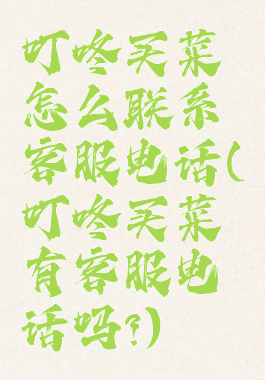 叮咚买菜
怎么联系
客服电话(
叮咚买菜
有客服电
话吗?)